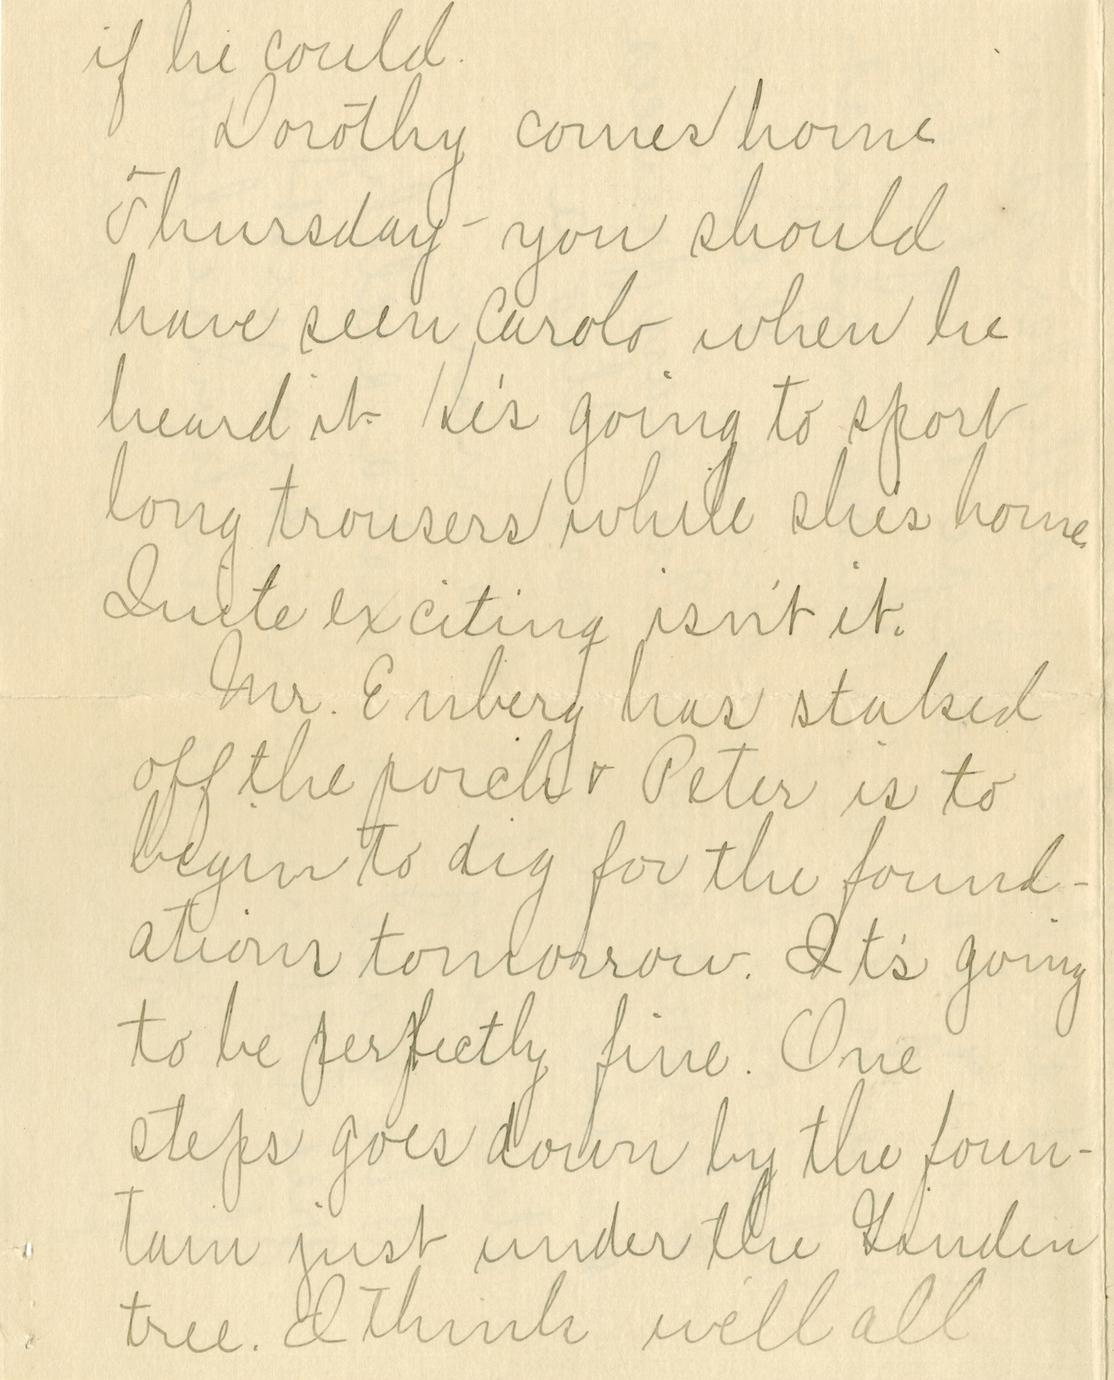 if he could.
Dorothy comes home
Thursday - you should
have seen Carolo when he
heard it. He's going to sport
long trousers while she's home.
Quite exciting isn't it.
Mr. Enberg has staked
off the porch & Peter is to
begin to dig for the found-
ations tomorrow. It's going
to be perfectly fine. One
steps goes down by the foun-
tain just under the Linden
tree. I think we'll all